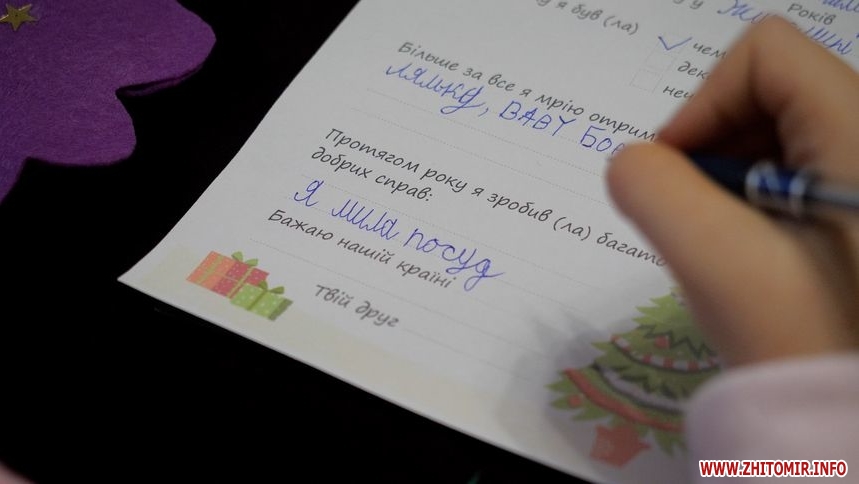 я був (ла)
чем
дек
неч
Років
Більше за все я мрію отрим
ляльку, BABY БО
Протягом року я зробив (ла) багато
добрих справ:
Я мила посуд
Бажаю нашій країні
Твій друг
WWW.ZHITOMIR.INFO